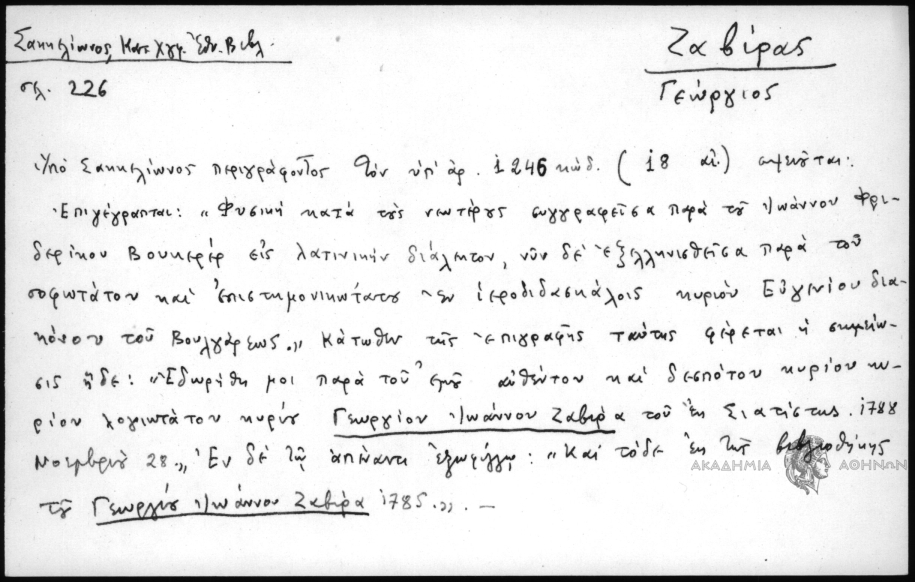 Σακκελίωνος, Κατ. Χγφ. Ἐθν. Βιβλ.
Ζαβίρας
σελ. 226
Γεώργιος
Ὑπὸ Σακκελίωνος περιγράφοντος τὸν ὑπ' ἀρ. 1246 κώδ. (18 αἰ.) σημειοῦται:
Ἐπιγέγραπται: „Φυσικὴ κατὰ τοὺς νεωτέρους συγγραφεῖσα παρὰ τοῦ Ἰωάννου Φρι-
δερίκου Βουχερὲρ εἰς λατινικὴν διάλεκτον, νῦν δὲ ἐξελληνισθεῖσα παρὰ τοῦ
σοφωτάτου καὶ ἐπιστημονικωτάτου ἐν ἱεροδιδασκάλοις κυρίου Εὐγενίου δια-
κόνου τοῦ Βουλγάρεως.„ Κάτωθεν τῆς ἐπιγραφῆς ταύτης φέρεται ἡ σημείω-
σις ἥδε: „Ἐδωρήθη μοι παρὰ τοῦ ἐμοῦ αὐθέντου καὶ δεσπότου κυρίου κυ-
ρίου λογιωτάτου κυρίου Γεωργίου Ἰωάννου Ζαβίρα τοῦ ἐκ Σιατίστης. 1788
Νοεμβρίου 28„ Ἐν δὲ τῷ ἀπέναντι ἐξωφύλλῳ: „Καὶ τόδε ἐκ τῆς βιβλιοθήκης
ΑΚΑΔΗΜΙΑ ΑΘΗΝΩΝ
τοῦ Γεωργίου Ἰωάννου Ζαβίρα 1785.„ —